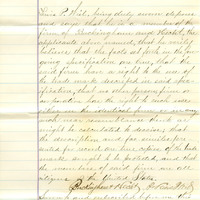 being duly sworn deposes
and says that he is a member of the
firm of Buckingham and Hecht, the
applicants above named, that he verily
believes that the facts set forth in the fore-
going specification are true, that the
said firm have a right to the use of
the mark described in said speci-
fication, that no other person firm or
corporation has the right to such use
either in the identical form or any
such near resemblance thereto as
might be calculated to deceive; that
the description and fac similes pre-
sented for record are true copies of the trade
mark sought to be protected, and that
the members of said firm are all
citizens of the United States.
Buckingham & Hecht